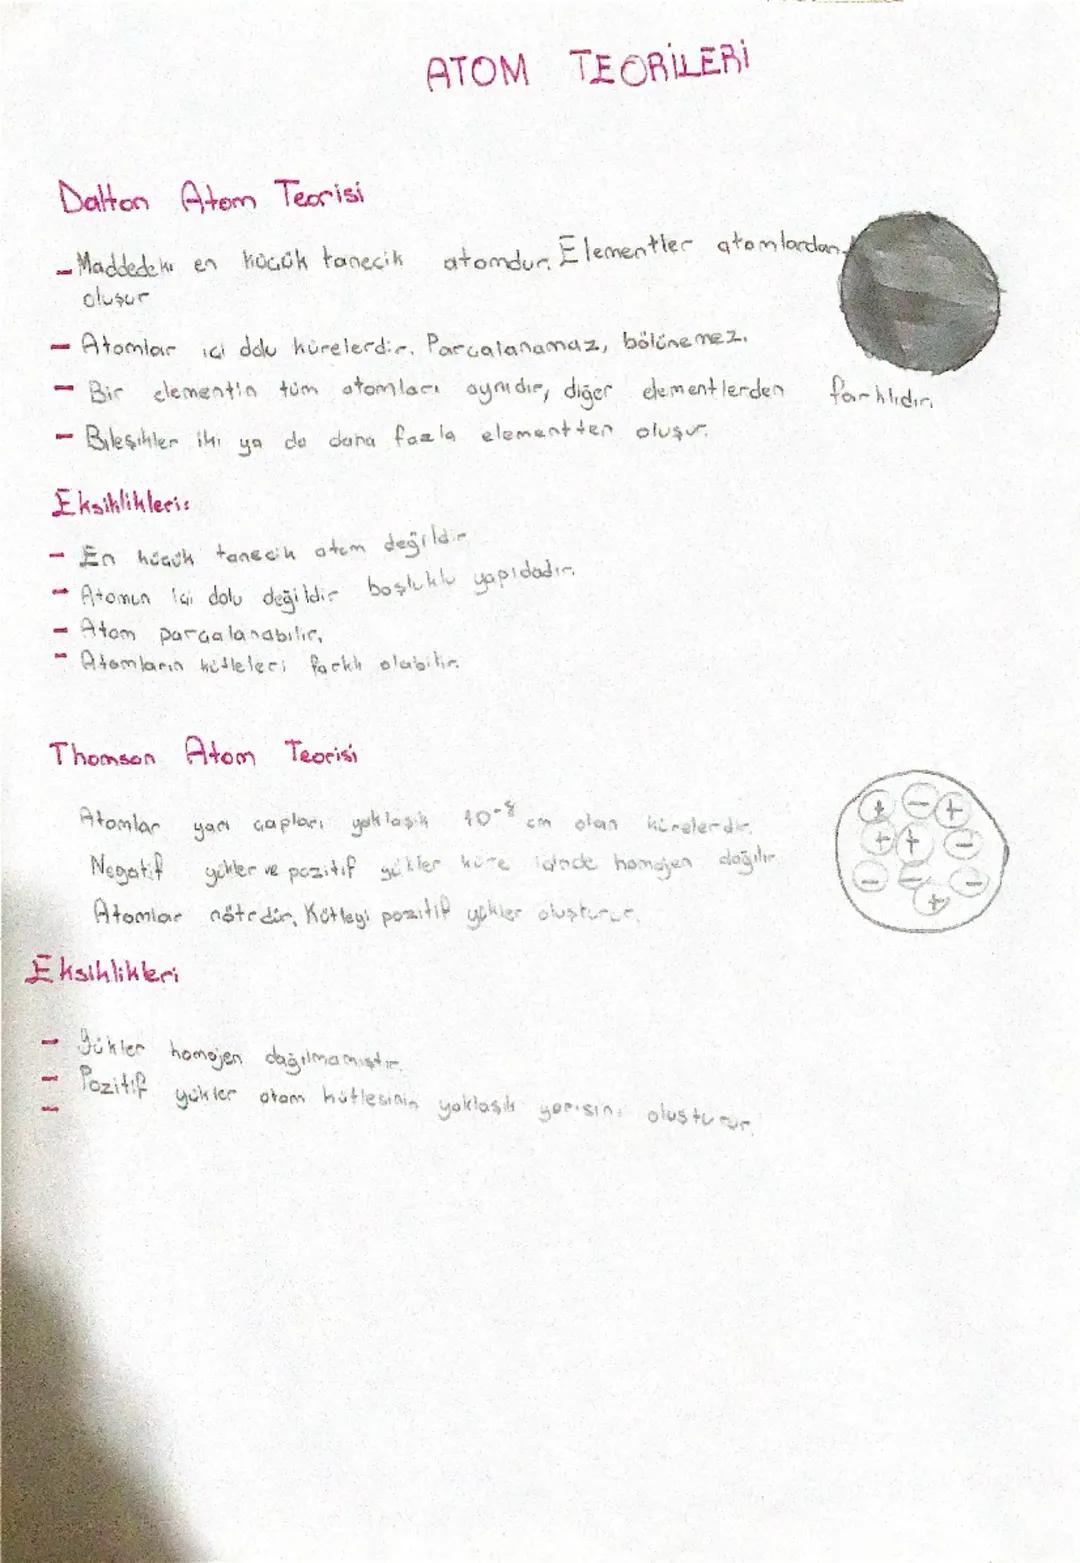 ATOM TEORİLERİ
Dalton Atom Teorisi
- Maddedeki en küçük tanecik atomdur. Elementler atomlardan
oluşur
- Atomlar içi dolu kürelerdir. Parçalanamaz, bölünemez.
- Bir elementin tüm atomları aynıdır, diğer elementlerden farklıdır.
- Bileşikler iki ya da daha fazla elementten oluşur.
Eksiklikleri:
- En küçük tanecik atom değildir
- Atomun içi dolu değildir boşluklu yapıdadır.
- Atom parçalanabilir.
- Atomların kütleleri farklı olabilir.
Thomson Atom Teorisi
Atomlar yarı çapları yaklaşık 10⁻⁸ cm olan kürelerdir.
Negatif yükler ve pozitif yükler küre içinde homojen dağılır
Atomlar nötrdür. Kütleyi pozitif yükler oluşturur.
+ - +
+ + -
- - -
+
Eksiklikleri
- Yükler homojen dağılmamıştır.
- Pozitif yükler atom kütlesinin yaklaşık yarısını oluşturur.
-